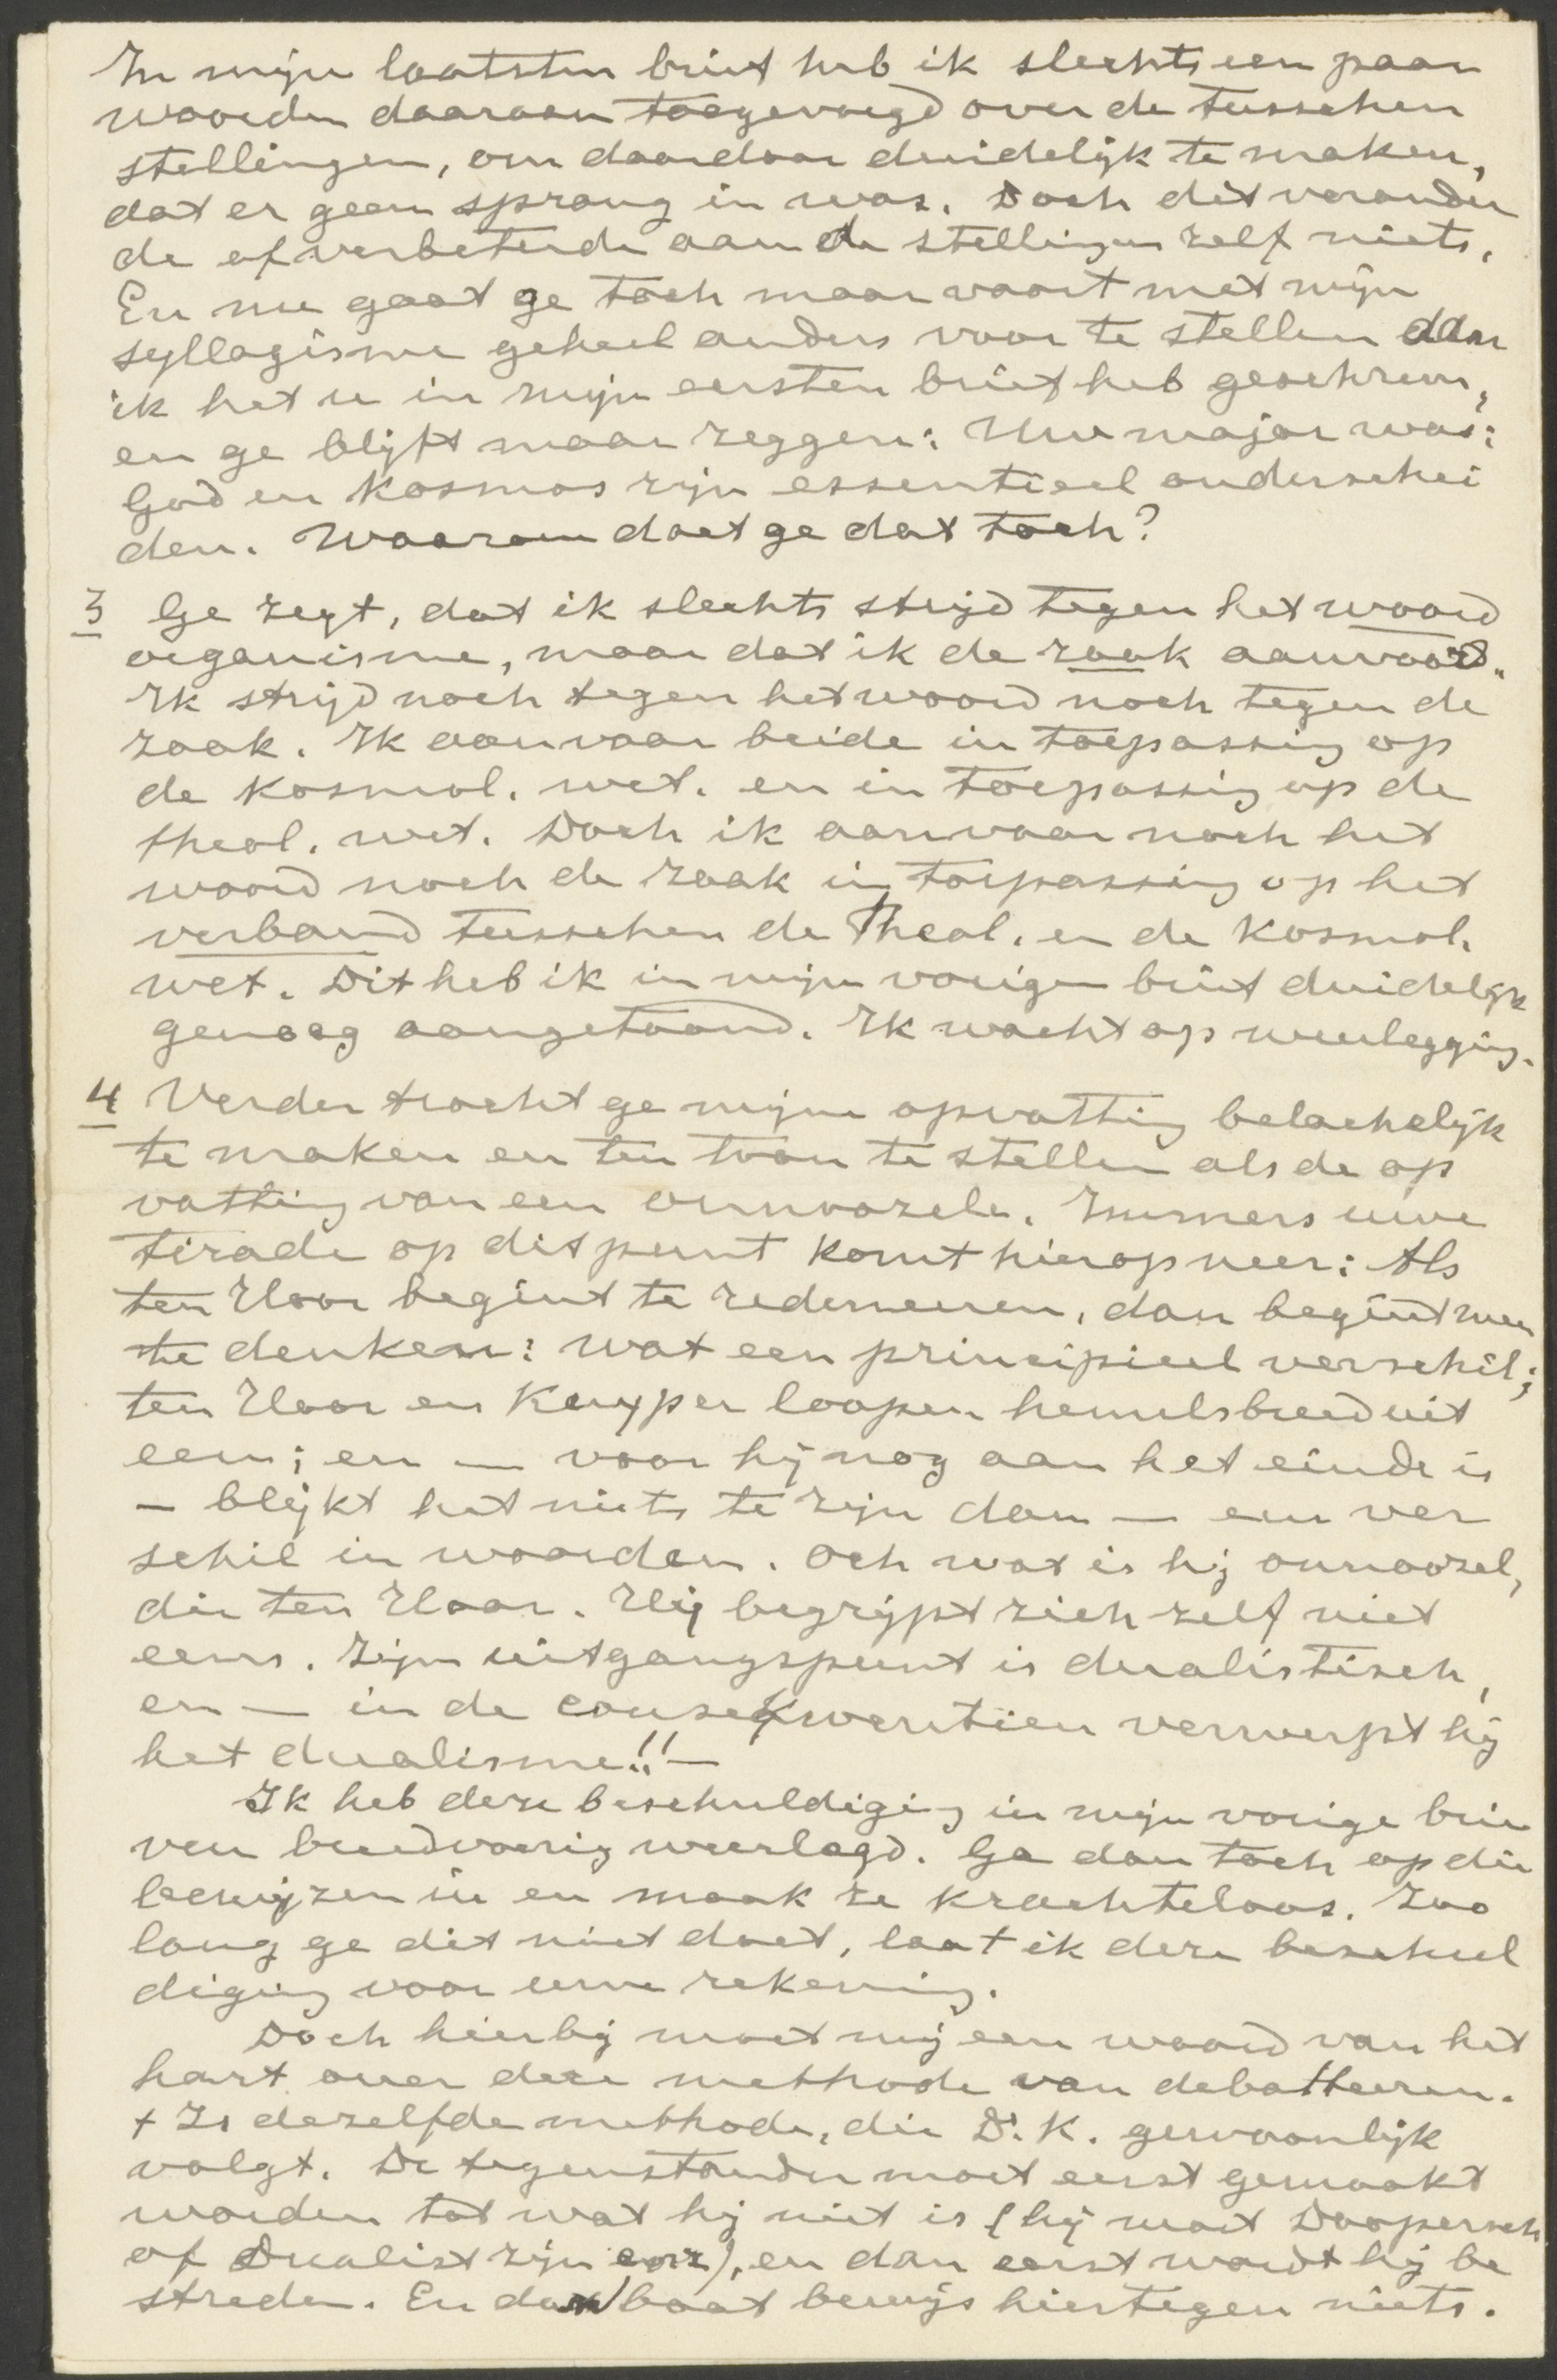 In mijn laatsten brief heb ik slechts een paar
woorden daaraan toegevoegd over de tusschen
stellingen, om daardoor duidelijk te maken,
dat er geen sprong in was. Doch dit verander
de of verbeterde aan de stellingen zelf niets.
En nu gaat ge toch maar voort met mijn
syllogisme geheel anders voor te stellen dan
ik het u in mijn eersten brief heb geschreven,
en ge blijft maar zeggen: Uw major was:
God en Kosmos zijn essentieel onderschei
den. Waarom doet ge dat toch?
3 Ge zegt, dat ik slechts strijd tegen het woord
organisme, maar dat ik de zaak aanvaard.
Ik strijd noch tegen het woord noch tegen de
zaak. Ik aanvaar beide in toepassing op
de Kosmol. wet. en in toepassing op de
theol. wet. Doch ik aanvaar noch het
woord noch de zaak in toepassing op het
verband tusschen de Theol. en de Kosmol.
wet. Dit heb ik in mijn vorigen brief duidelijk
genoeg aangetoond. Ik wacht op weerlegging.
4 Verder tracht ge mijne opvatting belachelijk
te maken en ten toon te stellen als de op
vatting van een onnoozele. Immers uwe
tirade op dit punt komt hierop neer: Als
ten Hoor begint te redeneeren, dan begint men
te denken: wat een principieel verschil;
ten Hoor en Kuyper loopen hemelsbreed uit
een; en — voor hij nog aan het einde is
— blijkt het niets te zijn dan — een ver
schil in woorden. Och wat is hij onnoozel,
die ten Hoor. Hij begrijpt zich zelf niet
eens. Zijn uitgangspunt is dualistisch,
en — in de consekwentien verwerpt hij
het dualisme!! —
Ik heb deze beschuldiging in mijn vorige brie
ven breedvoerig weerlegd. Ga dan toch op die
bewijzen in en maak ze krachteloos. Zoo
lang ge dit niet doet, laat ik deze beschul
diging voor uwe rekening.
Doch hierbij moet mij een woord van het
hart over deze methode van debatteeren.
t Is dezelfde methode, die Dr. K. gewoonlijk
volgt. De tegenstander moet eerst gemaakt
worden tot wat hij niet is (hij moet Doopersch
of Dualist zijn enz), en dan eerst wordt hij be
streden. En dan baat bewijs hiertegen niets.